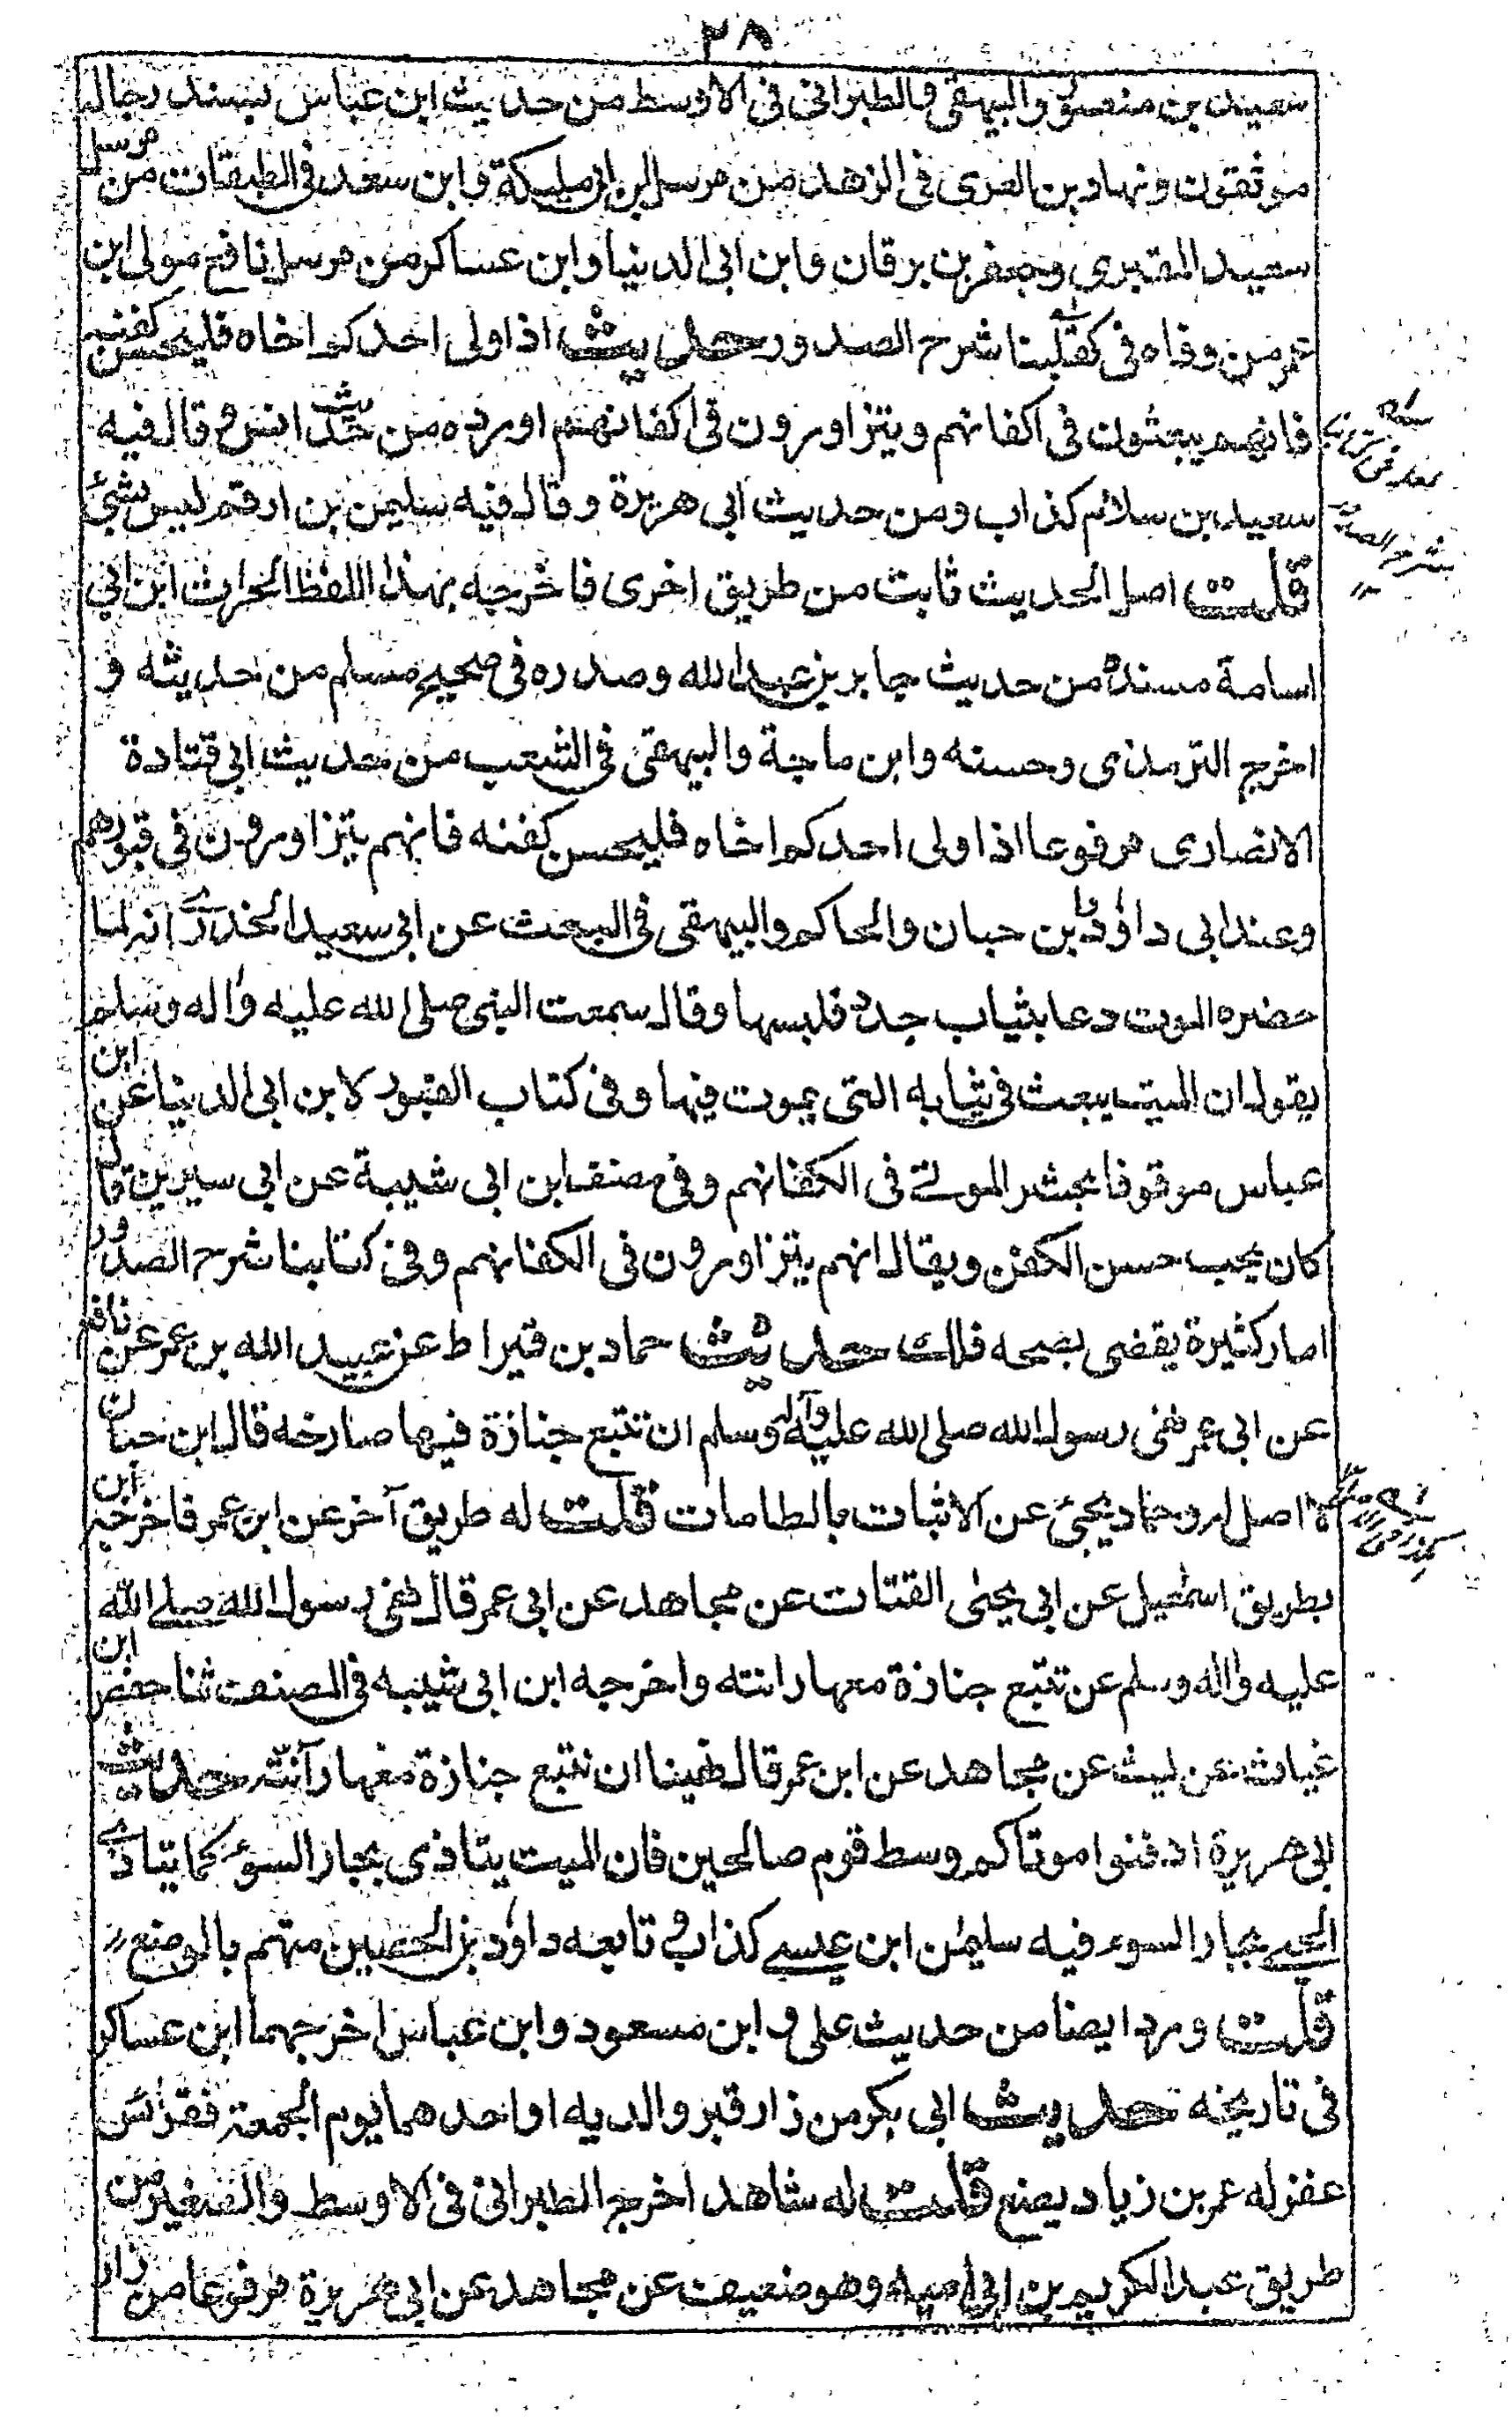 ٢٨
سعيد بن منصور والبيهقي والطبراني في الاوسط من حديث ابن عباس بسند رجاله
موثقون ونهاد بن السري في الزهد من مرسل ابن ابي مليكة وابن سعد في الطبقات من مرسل
سعيد المقبري وجعفر بن برقان وابن ابي الدنيا وابن عساكر من مرسل نافع مولى ابن
عمر من وفاه في كتابنا شرح الصدور حديث اذا ولى احدكم اخاه فليحسن كفنه
فانهم يبعثون في اكفانهم ويتزاورون في اكفانهم اورده من حديث انس وقال فيه
سعيد بن سلام كذاب ومن حديث ابي هريرة وقال فيه سليمن بن ارقم ليس بشئ
قلت اصل الحديث ثابت من طريق اخرى فاخرجه بهذا اللفظ الحرث ابن ابي
اسامة مسنده من حديث جابر بن عبد الله وصدره في صحيح مسلم من حديثه و
اخرج الترمذي وحسنه وابن ماجة والبيهقي في الشعب من حديث ابي قتادة
الانصاري مرفوعا اذا ولى احدكم اخاه فليحسن كفنه فانهم يتزاورون في قبورهم
وعند ابي داود وابن حبان والحاكم والبيهقي في البعث عن ابي سعيد الخدري انه لما
حضره الموت دعا بثياب جدد فلبسها وقال سمعت النبي صلى الله عليه واله وسلم
يقول ان الميت يبعث في ثيابه التي يموت فيها وفي كتاب القبور لابن ابي الدنيا عن ابن
عباس موقوفا يحشر الموتے في اكفانهم وفي مصنف ابن ابي شيبة عن ابي سيرين قال
كان يحب حسن الكفن ويقال انهم يتزاورون في اكفانهم وفي كتابنا شرح الصدور
اصار كثيرة يقضى بصحه فلك حديث حماد بن قيراط عن عبيد الله بن عمر عن نافع
عن ابي عمر نهى رسول الله صلى الله عليه وآله وسلم ان تتبع جنازة فيها صارخه قال ابن حبان
لا اصل له وحماد يجئ عن الاثبات بالطامات قلت له طريق آخر عن ابن عمر فاخرجه ابن
بطريق اسمعيل عن ابي يحيى القتات عن مجاهد عن ابي عمر قال نهى رسول الله صلے الله
عليه واله وسلم عن تتبع جنازة معها رانته واخرجه ابن ابي شيبه في المصنف ثنا حفص ابن
غياث عن ليث عن مجاهد عن ابن عمر قال نهينا ان نتبع جنازة معها رآنة حديث
ابي هريرة ادفنوا موتاكم وسط قوم صالحين فان الميت يتاذى بجار السوء كما يتاذے
الحے بجار السوء فيه سليمن ابن عيسے كذاب وتابعه داود بن الحصين متهم بالوضع
قلت ورد ايضا من حديث علي وابن مسعود وابن عباس اخرجهما ابن عساكر
في تاريخه حديث ابي بكر من زار قبر والديه او احدهما يوم الجمعة فقرأ يس
غفر له عمر بن زياد يضع قلت له شاهد اخرج الطبراني في الاوسط والصغير من
طريق عبد الكريم بن ابي اميه وهو ضعيف عن مجاهد عن ابي هريرة مرفوعا من زار